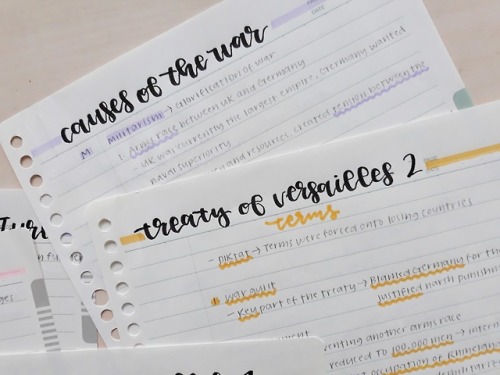 DATE
causes of the war
M: militarism → glorification of war
1. Arms race between UK and Germany
- UK was currently the largest empire, Germany wanted
naval superiority
and resources, created tension between the
treaty of versailles 2
terms
- diktat → Terms were forced onto losing countries
war guilt
- Key part of the treaty → Blamed Germany for the
justified harsh
venting another arms race
reduced to 100,000 men →
occupation of